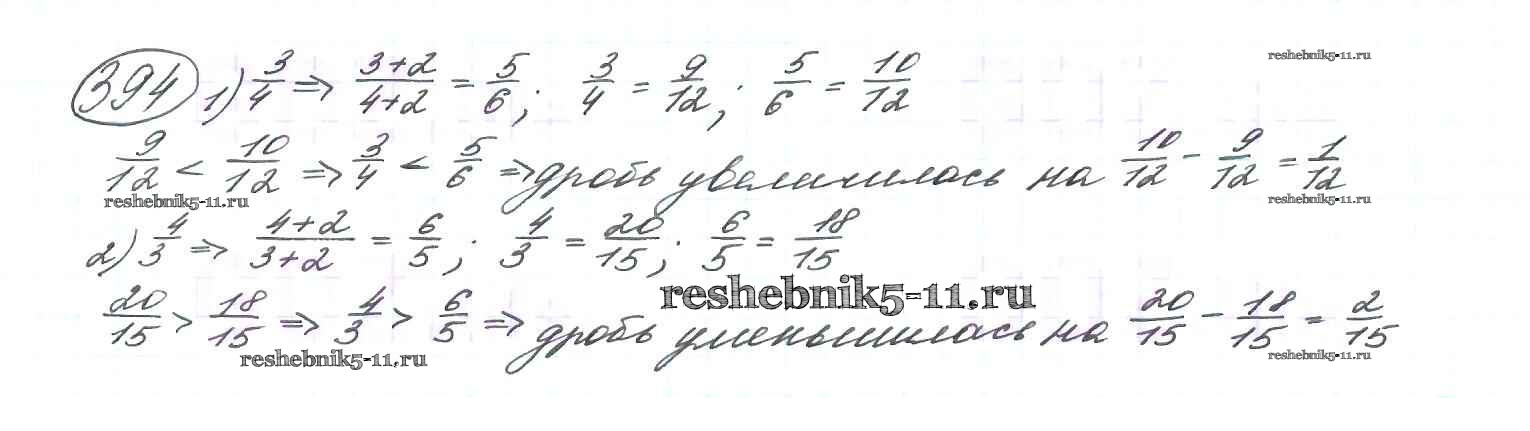 394 1) 3/4 => (3+2)/(4+2) = 5/6; 3/4 = 9/12; 5/6 = 10/12 reshebnik5-11.ru
9/12 < 10/12 => 3/4 < 5/6 => дробь увеличилась на 10/12 - 9/12 = 1/12
reshebnik5-11.ru reshebnik5-11.ru
2) 4/3 => (4+2)/(3+2) = 6/5; 4/3 = 20/15; 6/5 = 18/15
reshebnik5-11.ru
20/15 > 18/15 => 4/3 > 6/5 => дробь уменьшилась на 20/15 - 18/15 = 2/15
reshebnik5-11.ru reshebnik5-11.ru